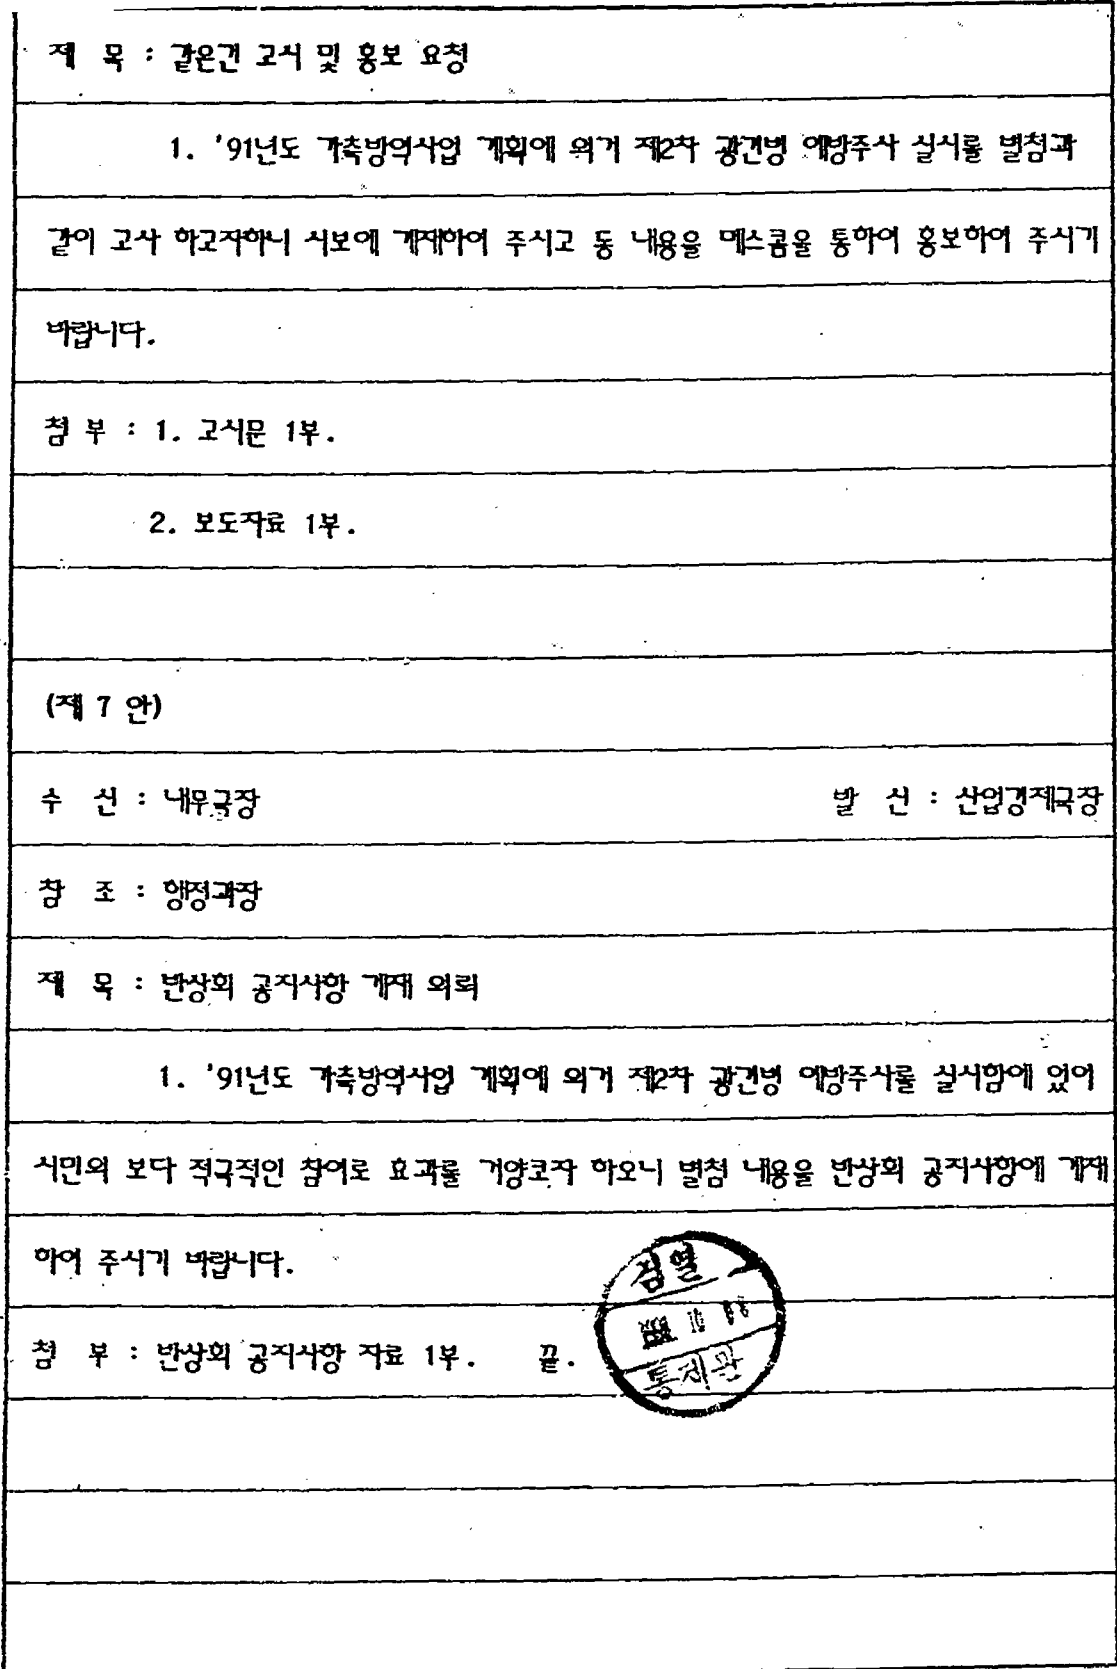 제 목 : 같은건 고시 및 홍보 요청
1. '91년도 가축방역사업 계획에 의거 제2차 광견병 예방주사 실시를 별첨과
같이 고사 하고자하니 시보에 게재하여 주시고 동 내용을 메스콤을 통하여 홍보하여 주시기
바랍니다.
첨 부 : 1. 고시문 1부.
2. 보도자료 1부.
(제 7 안)
수 신 : 내무국장 발 신 : 산업경제국장
참 조 : 행정과장
제 목 : 반상회 공지사항 게재 의뢰
1. '91년도 가축방역사업 계획에 의거 제2차 광견병 예방주사를 실시함에 있어
시민의 보다 적극적인 참여로 효과를 거양코자 하오니 별첨 내용을 반상회 공지사항에 게재
하여 주시기 바랍니다.
첨 부 : 반상회 공지사항 자료 1부. 끝.
검열
통제관